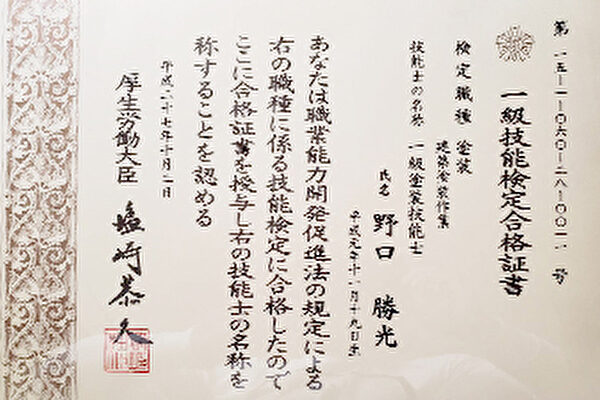 第一五-一-〇六〇-二八-〇〇一一号
一級技能検定合格証書
検定職種 塗装
建築塗装作業
技能士の名称 一級塗装技能士
氏名 野口 勝光
平成元年十一月十九日生
あなたは職業能力開発促進法の規定による
右の職種に係る技能検定に合格したので
ここに合格証書を授与し右の技能士の名称を
称することを認める
平成二十七年十月二日
厚生労働大臣 塩崎恭久